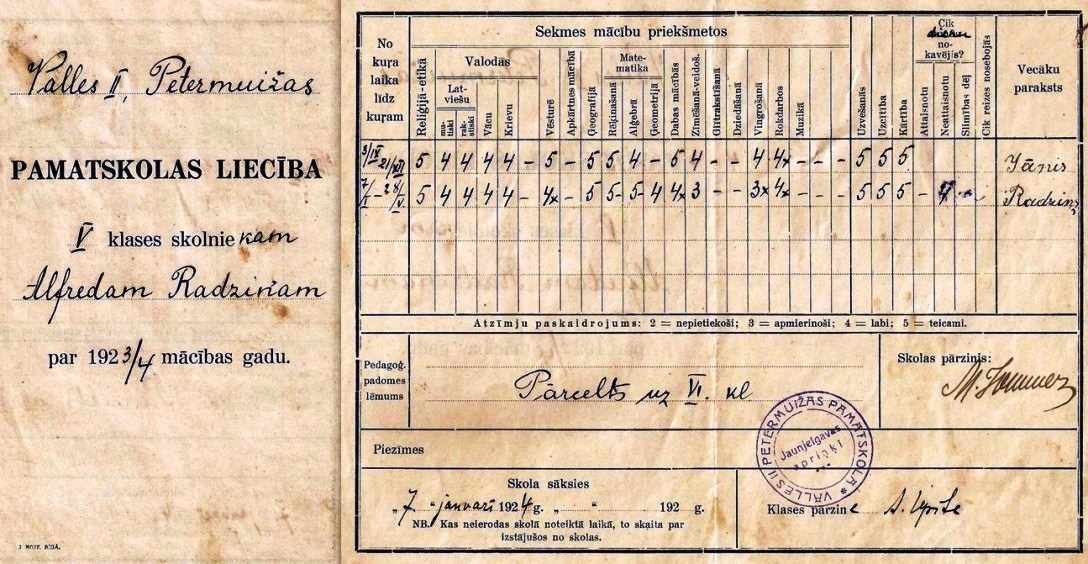 Valles II, Pētermuižas
PAMATSKOLAS LIECĪBA
V klases skolnie kam
Alfredam Radziņam
par 1923/4 mācības gadu.
J. ROZE, RĪGĀ.
No kuŗa laika līdz kuŗam
Sekmes mācību priekšmetos
Reliģija-etika
Valodās
Latviešu
mutiski
rakstiski
Vācu
Krievu
Vēsturē
Apkārtnes mācībā
Ģeografijā
Matematika
Rēķināšanā
Alģebrā
Ģeometrijā
Dabas mācībās
Zīmēšanā-veidoš.
Glītrakstīšanā
Dziedāšanā
Vingrošanā
Rokdarbos
Muzikā
Uzvešanās
Uzcītība
Kārtība
Cik
nokavējis?
Attaisnotu
Neattaisnotu
Slimības dēļ
Cik reizes nosebojās
Vecāku paraksts
3/IX - 21/XII 5 4 4 4 4 - 5 - 5 5 4 - 5 4 - - 4 4x - - - 5 5 5 Jānis
7/I - 28/V 5 4 4 4 4 - 4x - 5 5 5 4 4x 3 - - 3x 4x - - - 5 5 5 - Radziņš
Atzīmju paskaidrojums: 2 = nepietiekoši; 3 = apmierinoši; 4 = labi; 5 = teicami.
Pedagoģ. padomes lēmums
Pārcelts uz VI. kl
Skolas pārzinis:
VALLES II PĒTERMUIŽAS PAMATSKOLA
Jaunjelgavas
apriņķī
Piezīmes
Skola sāksies
„7“ janvarī 1924 g. „ “ 192 g.
NB. Kas neierodas skolā noteiktā laikā, to skaita par
izstājušos no skolas.
Klases pārzine